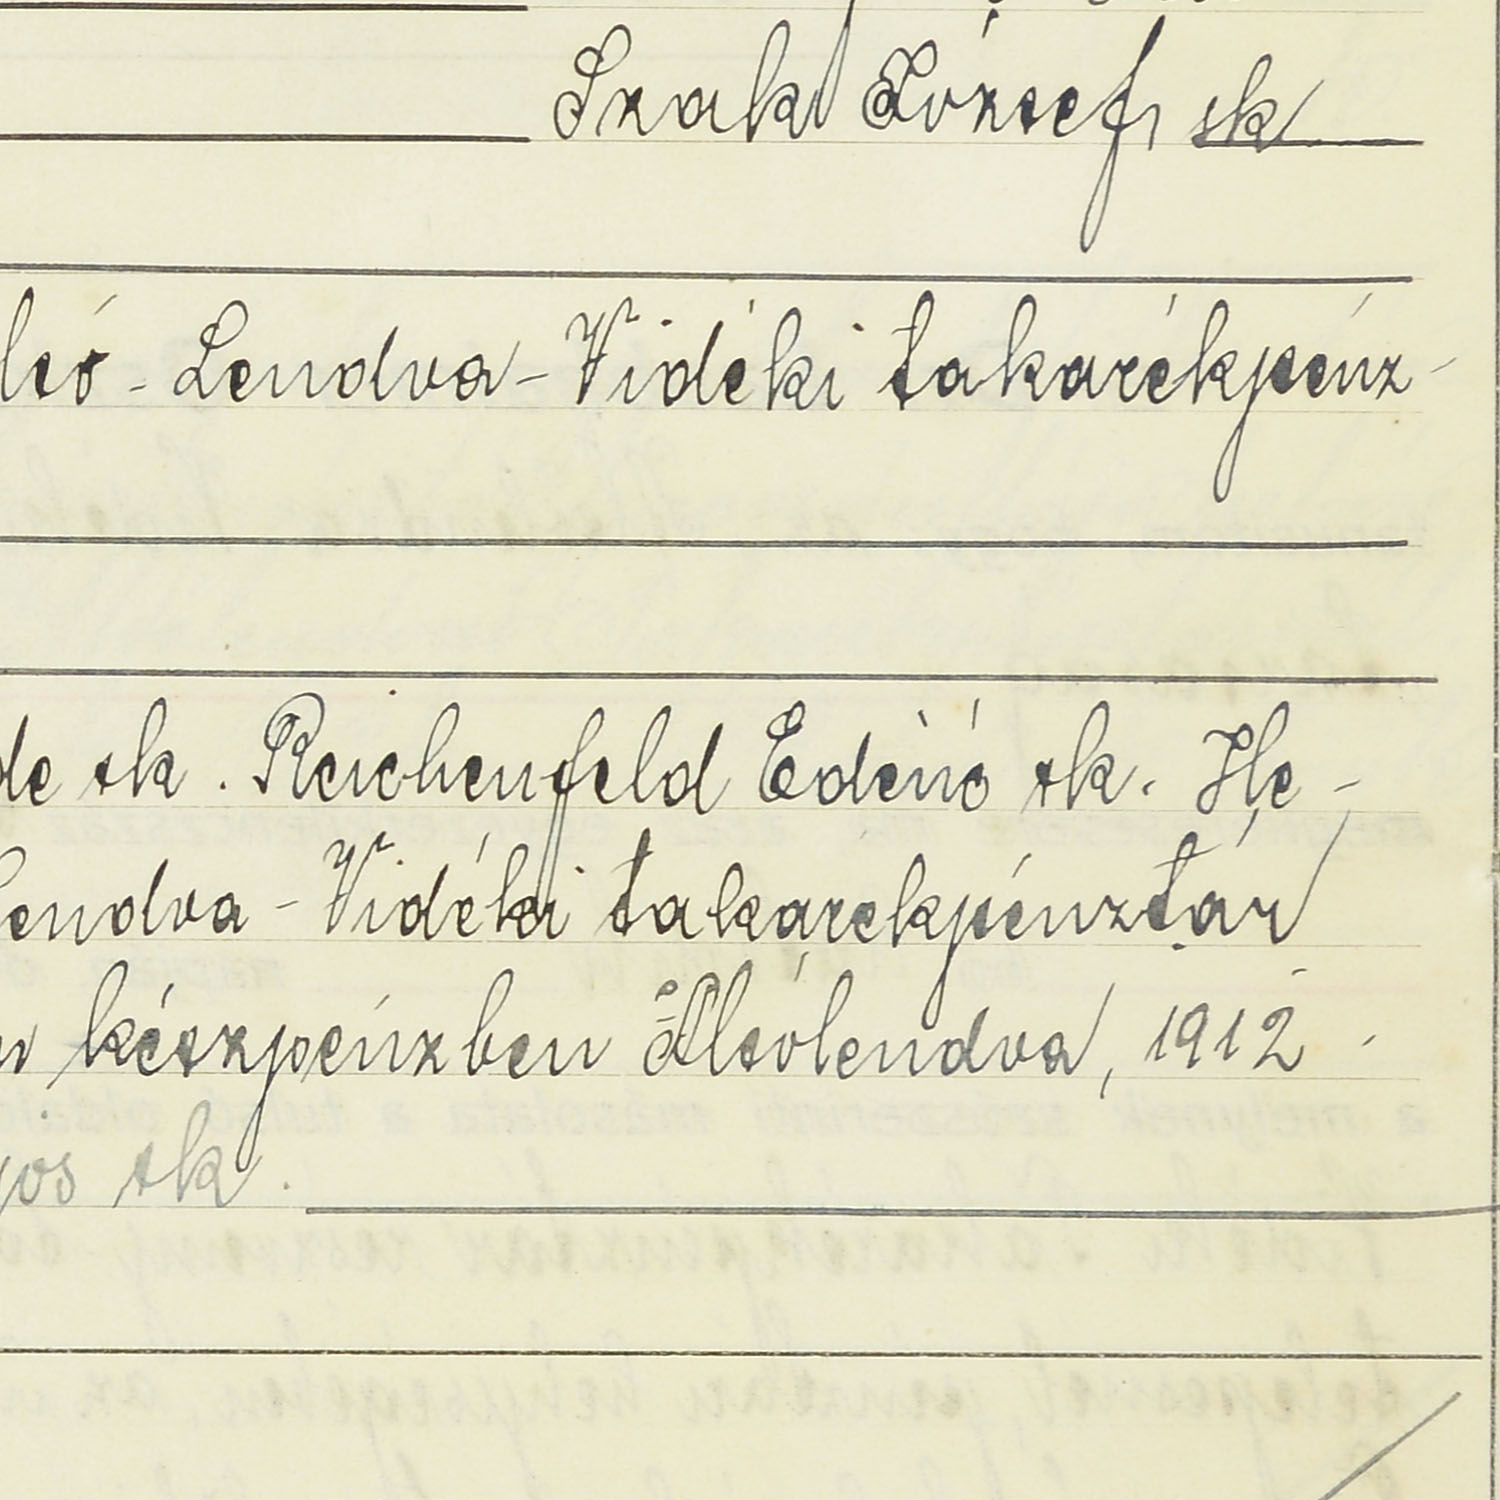 Szak József sk
lsó-Lendva-Vidéki takarékpénz-
de sk. Reichenfeld Edéné sk. He-
Lendva-Vidéki takarékpénztár
készpénzben Alsólendva, 1912
sk.